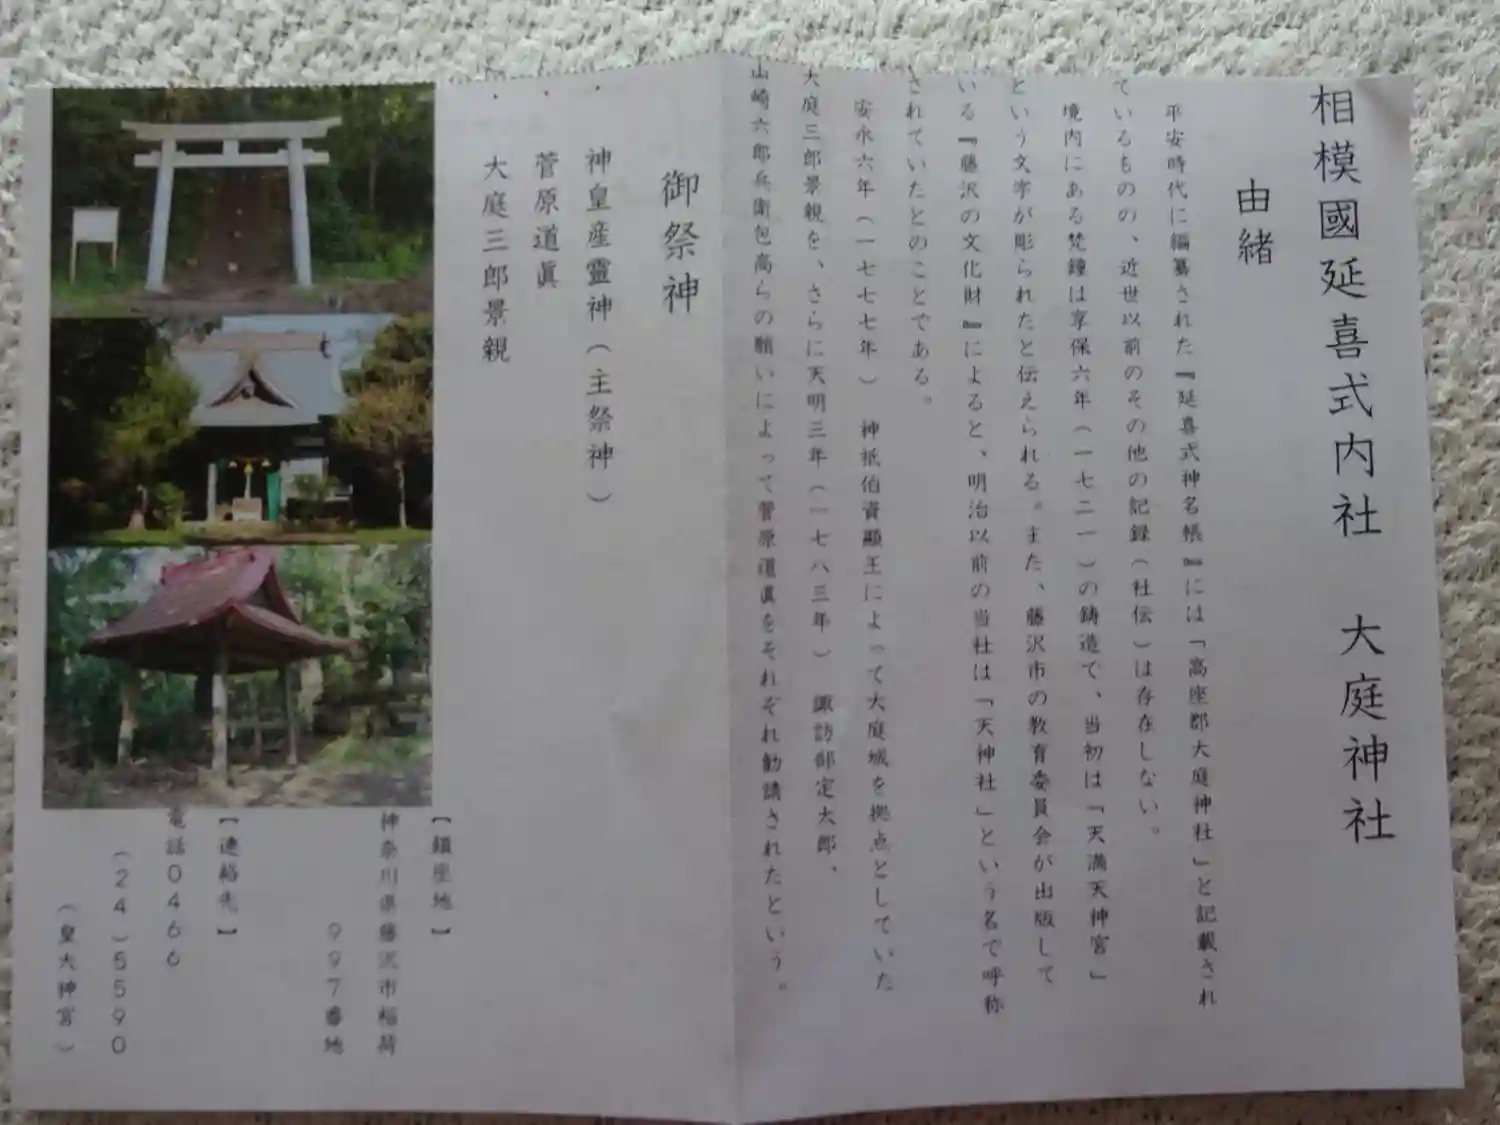 相模國延喜式内社　大庭神社
由緒
平安時代に編纂された『延喜式神名帳』には「高座郡大庭神社」と記載され
ているものの、近世以前のその他の記録（社伝）は存在しない。
境内にある梵鐘は享保六年（一七二一）の鋳造で、当初は「天満天神宮」
という文字が彫られたと伝えられる。また、藤沢市の教育委員会が出版して
いる『藤沢の文化財』によると、明治以前の当社は「天神社」という名で呼称
されていたとのことである。
安永六年（一七七七年）　神祇伯資顯王によって大庭城を拠点としていた
大庭三郎景親を、さらに天明三年（一七八三年）　諏訪部定太郎、
山崎六郎兵衛包高らの願いによって菅原道眞をそれぞれ勧請されたという。
御祭神
・神皇産靈神（主祭神）
・菅原道眞
・大庭三郎景親
【鎮座地】
神奈川県藤沢市稲荷
９９７番地
【連絡先】
電話０４６６
（２４）５５９０
（皇大神宮）